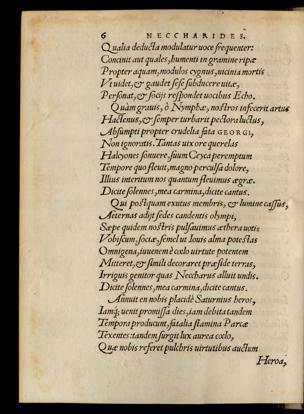 6 NECCHARIDES.
Qualia deducta modulatur uoce frequenter:
Concinit aut quales, humenti in gramine ripæ
Propter aquam, modulos cygnus, uicinia mortis
Vt uidet, & gaudet sese subducere uitæ,
Personat, & socijs respondet uocibus Echo.
Quàm grauis, ô Nymphæ, nostros infecerit artus
Hactenus, & semper turbarit pectora luctus,
Absumpti propter crudelia fata GEORGI,
Non ignoratis. Tantas uix ore querelas
Halcyones fouere, suum Ceyca peremptum
Tempore quo fleuit, magno perculsa dolore,
Illius interitum nos quantum fleuimus ægræ.
Dicite solennes, mea carmina, dicite cantus.
Qui postquam exutus membris, & lumine cassus,
Aeternas adijt sedes candentis olympi,
Sæpe quidem nostris pulsauimus æthera uotis
Vobiscum, sociæ, semel ut Iouis alma potestas
Omnigena, iuuenem è cœlo uirtute potentem
Mitteret, & simili decoraret præside terras,
Irriguis genitor quas Neccharus alluit undis.
Dicite solennes, mea carmina, dicite cantus.
Annuit en nobis placidè Saturnius heros,
Iamq; uenit promissa dies, iam debita tandem
Tempora producunt, fatalia stamina Parcæ
Texentes: tandem surgit lux aurea cœlo,
Quæ nobis referet pulchris uirtutibus auctum
Heroa,